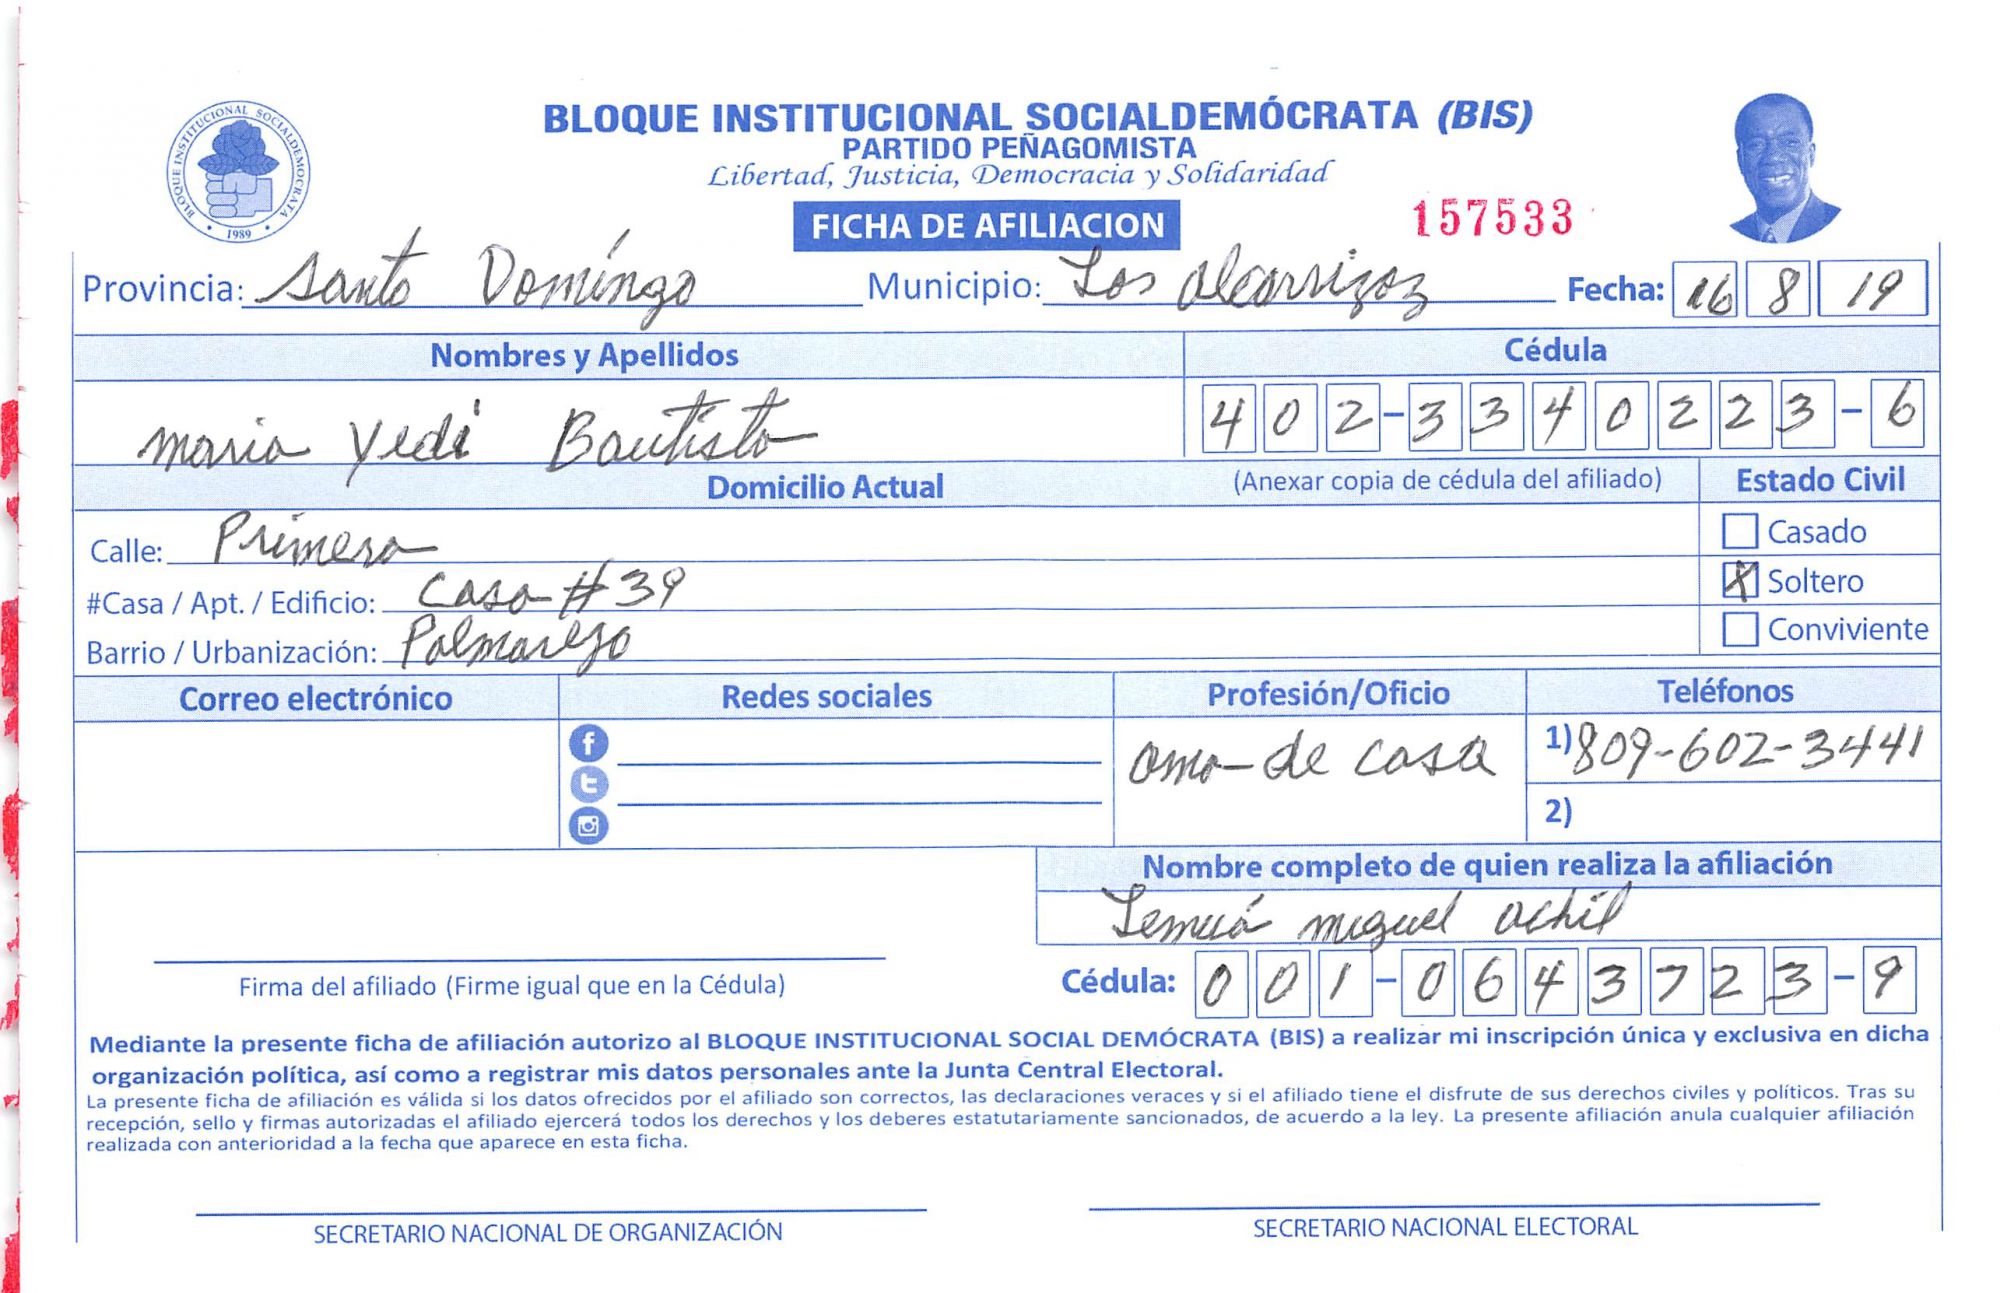 BLOQUE INSTITUCIONAL SOCIALDEMÓCRATA (BIS)
PARTIDO PEÑAGOMISTA
Libertad, Justicia, Democracia y Solidaridad
BLOQUE INSTITUCIONAL SOCIALDEMOCRATA
1989
FICHA DE AFILIACION
157533
Provincia: Santo Domíngo Municipio: Los alcarrizoz Fecha: 16 8 19
Nombres y Apellidos Cédula
maria yedi Bautista 402-3340223-6
Domicilio Actual (Anexar copia de cédula del afiliado) Estado Civil
Calle: Primera
Casado
#Casa / Apt. / Edificio: casa #39
X Soltero
Barrio / Urbanización: Palmarejo
Conviviente
Correo electrónico Redes sociales Profesión/Oficio Teléfonos
ama de casa 1) 809-602-3441
2)
Nombre completo de quien realiza la afiliación
miguel achil
Firma del afiliado (Firme igual que en la Cédula) Cédula: 001-0643723-9
Mediante la presente ficha de afiliación autorizo al BLOQUE INSTITUCIONAL SOCIAL DEMÓCRATA (BIS) a realizar mi inscripción única y exclusiva en dicha
organización política, así como a registrar mis datos personales ante la Junta Central Electoral.
La presente ficha de afiliación es válida si los datos ofrecidos por el afiliado son correctos, las declaraciones veraces y si el afiliado tiene el disfrute de sus derechos civiles y políticos. Tras su
recepción, sello y firmas autorizadas el afiliado ejercerá todos los derechos y los deberes estatutariamente sancionados, de acuerdo a la ley. La presente afiliación anula cualquier afiliación
realizada con anterioridad a la fecha que aparece en esta ficha.
SECRETARIO NACIONAL DE ORGANIZACIÓN SECRETARIO NACIONAL ELECTORAL